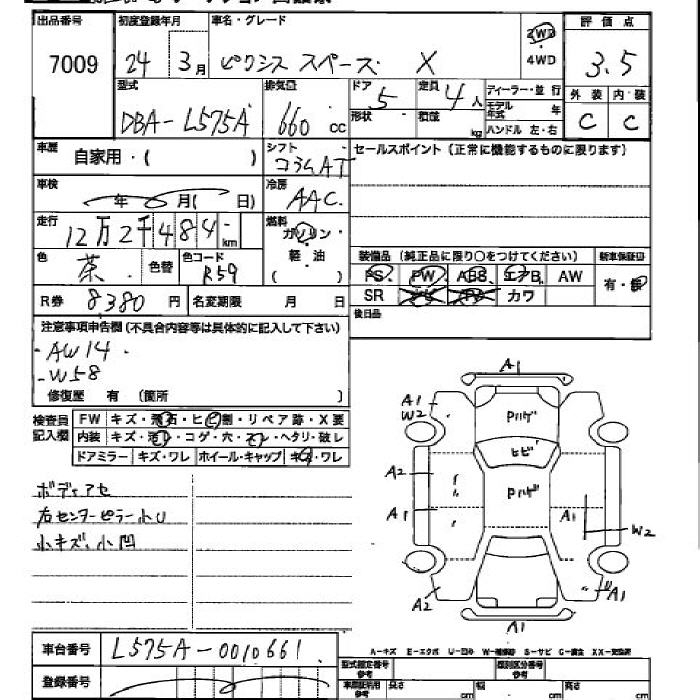 出品番号 初度登録年月 車名・グレード 評価点
7009 24 3月 ピクシス スペース X 2WD 4WD 3.5
型式 排気量 ドア 定員 ディーラー・並行 外装 内・装
DBA-L575A 660 cc 5 4人 モデル年式 年 C C
形状 積載 kg ハンドル 左・右
車歴 自家用・( ) シフト コラムAT セールスポイント (正常に機能するものに限ります)
車検 年 月( 日) 冷房 AAC
走行 12万2千484 km 燃料 ガソリン・軽油 ( )
色 茶 色替 色コード R59 装備品 (純正品に限り○をつけてください) 新車保証書
PS PW ABS エアB AW 有・無
R券 8,380円 名変期限 月 日 SR ナビ TV カワ
後日品
注意事項申告欄(不具合内容等は具体的に記入して下さい)
・AW14
・W58
修復歴 有 (箇所 )
検査員記入欄 FW キズ・飛石・ヒビ割・リペア跡・X要
内装 キズ・汚レ・コゲ・穴・スレ・ヘタリ・破レ
ドアミラー キズ・ワレ ホイール・キャップ キズ・ワレ
ボディアセ
右センターピラー小U
小キズ、小凹
A1
A1 W2 Pハゲ
ヒビ
A2 Pハゲ
A1 A1 W2
A2 A1
A1
車台番号 L575A-0010661
A-キズ E-エクボ U-凹み W-補修跡 S-サビ C-腐食 XX-交換済
登録番号 型式指定番号 参考 類別区分番号 参考
車検証記載 参考 長さ cm 幅 cm 高さ cm